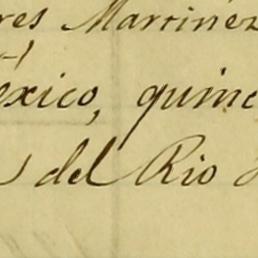 res Martinez
éxico, quinc
del Rio